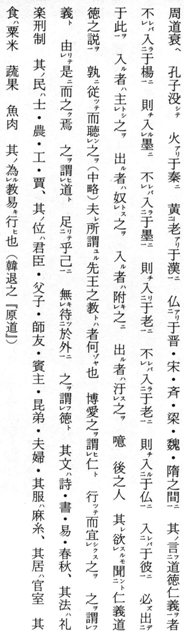 周道衰ヘ 孔子没シ 火アリ于秦ニ 黄老アリ于漢ニ 仏アリ于晋・宋・斉・梁・魏・隋之間ニ 其ノ言フ道徳仁義ヲ者
不レバ入ラ于楊ニ 則チ入ル墨ニ 不レバ入ラ于墨ニ 則チ入リ于老ニ 不レバ入ラ于老ニ 則チ入ル于仏ニ 入レバ于彼ニ 必ズ出ヅ
于此ヲ 入ル者ハ主トシ之ヲ 出ル者ハ奴トス之ヲ 入ル者ハ附キ之ニ 出ル者ハ汙トス之ヲ 噫 後之人 其レ欲スルモ聞カント仁義道
徳之説ヲ 孰ニ従ツテ而聴カン之ヲ(中略)夫レ所謂ユル先王之教トハ者何ゾヤ也 博愛之ヲ謂ヒ仁ト 行ツテ而宜シクス之ヲ 之ヲ謂フ
義ト 由リ是ニ而之ク焉 之ヲ謂ヒ道ト 足リテ乎己ニ 無キ待ツコト於外ニ 之ヲ謂フ徳ト 其文ハ詩・書・易・春秋、其法ハ礼
楽刑制 其ノ民ハ士・農・工・賈、其ノ位ハ君臣・父子・師友・賓主・昆弟・夫婦・其服ハ麻糸、其居ハ宮室 其
食ハ粟米 蔬果 魚肉 其ノ為ルヤ教易キ行ヒ也(韓退之『原道』)